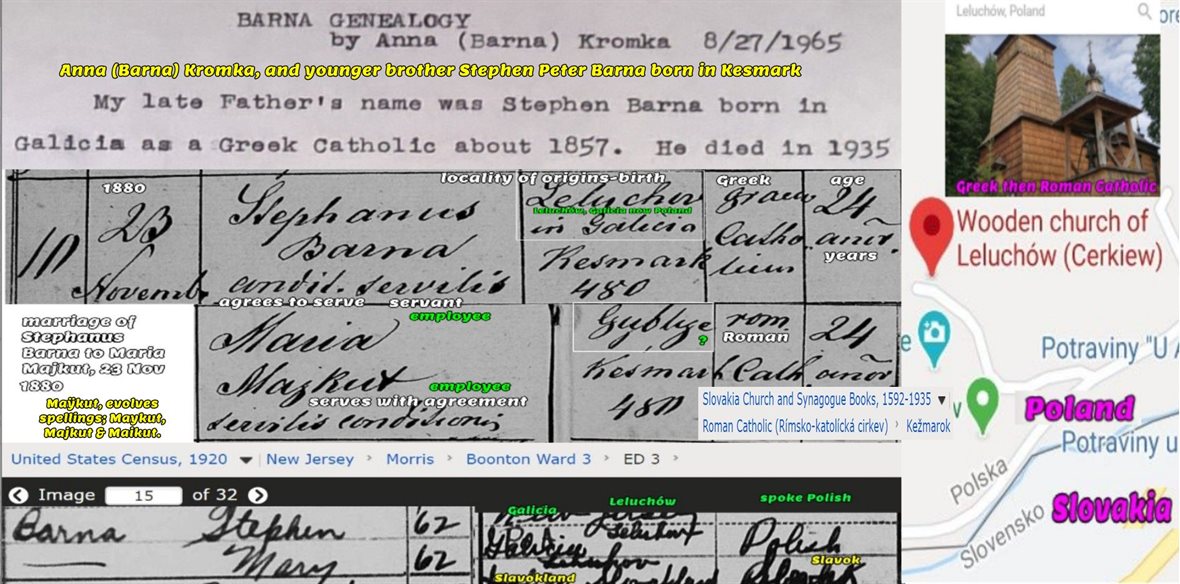 BARNA GENEALOGY
by Anna (Barna) Kromka 8/27/1965
Anna (Barna) Kromka, and younger brother Stephen Peter Barna born in Kesmark
My late Father's name was Stephen Barna born in
Galicia as a Greek Catholic about 1857. He died in 1935
1880
locality of origins-birth
Greek
age
10
23
Novemb
Stephanus
Barna
condit. servilis
agrees to serve servant
employee
Leluchov
Leluchów, Galicia now Poland
in Galicia
Kesmark
480
graeco
Catho
licus
24
anor.
years
marriage of
Stephanus
Barna to Maria
Majkut, 23 Nov
1880
Maÿkut, evolves
spellings; Maykut,
Majkut & Maikut.
Maria
Majkut
employee
serves with agreement
servilis conditionis
?
Kesmark
480
rom
Roman
Cath
24
anor
Slovakia Church and Synagogue Books, 1592-1935
Roman Catholic (Rímsko-katolícká cirkev) › Kežmarok
United States Census, 1920 New Jersey › Morris › Boonton Ward 3 › ED 3 ›
Image 15 of 32
Galicia
Leluchów
spoke Polish
Barna Stephen 62
Mary 62
Polish
Slavokland
Slavok
Leluchów, Poland
Greek then Roman Catholic
Wooden church of
Leluchów (Cerkiew)
e
Potraviny "U
v
Poland
Potraviny u
Polska
Slovensko
Slovakia